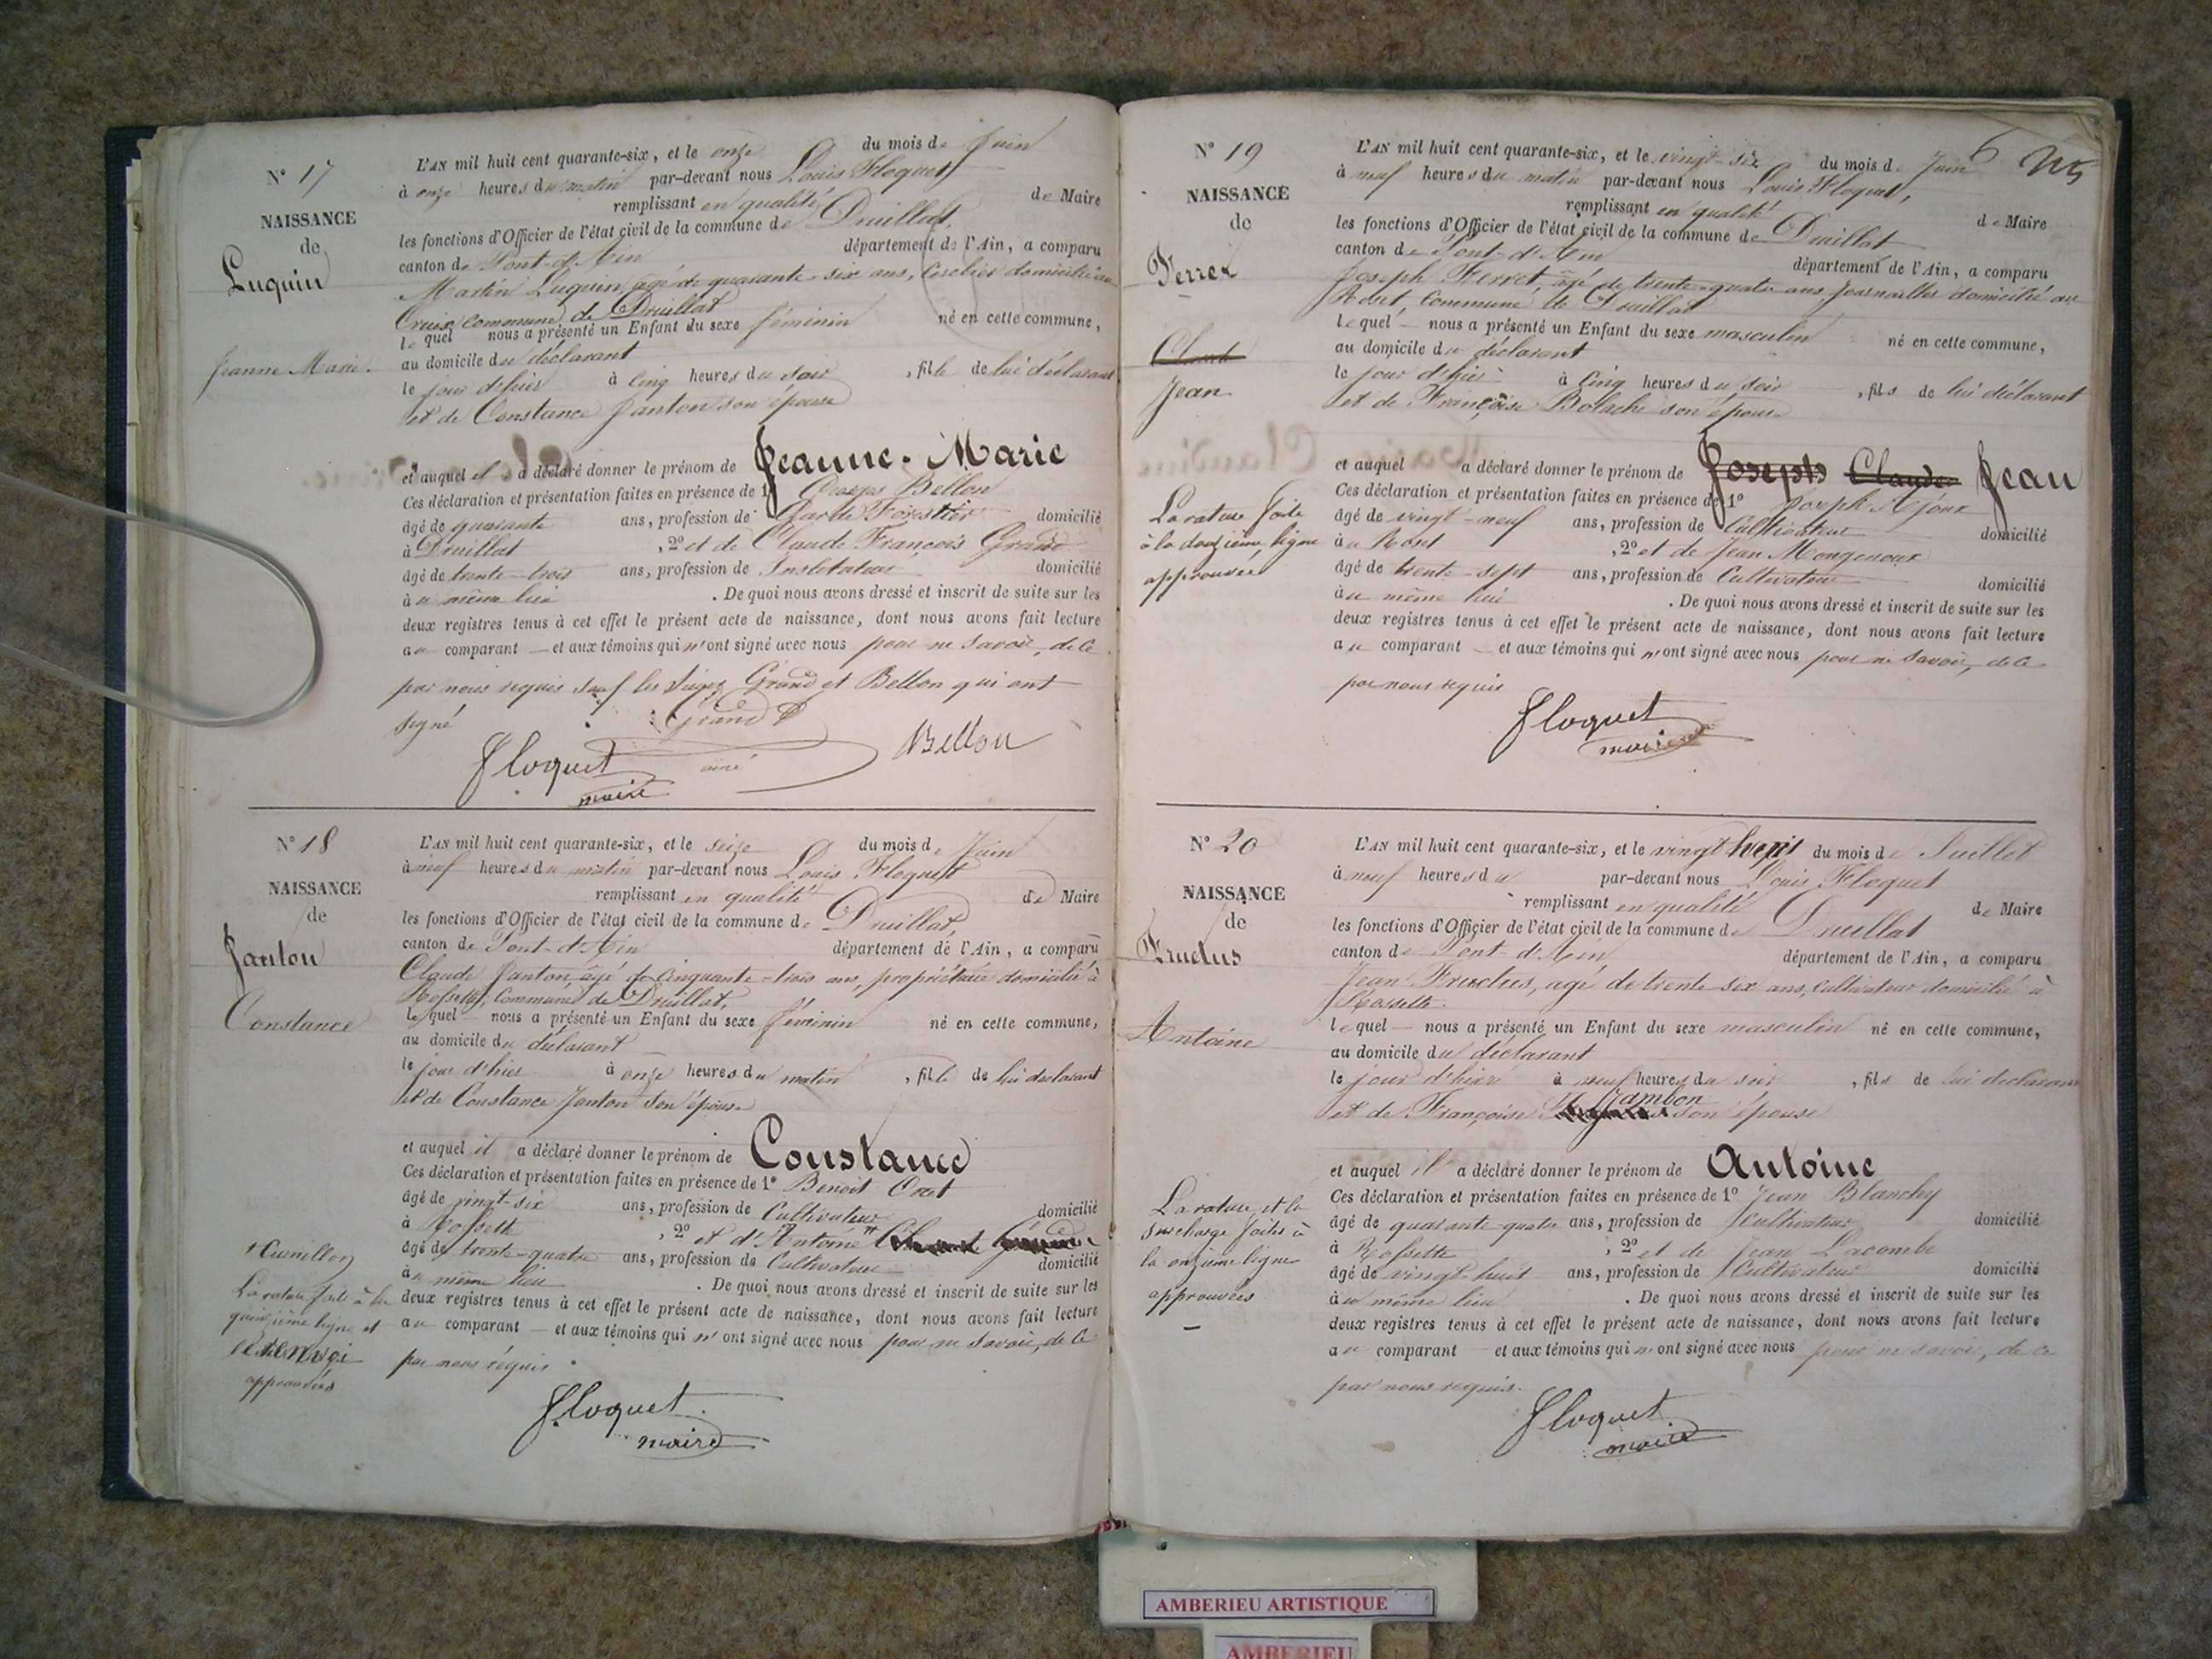 N° 17
NAISSANCE
de
Luquin
Jeanne Marie.
L'AN mil huit cent quarante-six, et le onze du mois de Juin
à onze heures du matin par-devant nous Louis Floquet
remplissant en qualité de Maire
les fonctions d'Officier de l'état civil de la commune de Druillat,
canton de Pont-d'Ain département de l'Ain, a comparu
Martin Luquin, âgé de quarante-six ans, domicilié au
Cruix commune de Druillat
lequel nous a présenté un Enfant du sexe féminin né en cette commune,
au domicile du déclarant
le jour d'hier à cinq heures du soir, fille de lui déclarant
et de Constance Janton son épouse
et auquel il a déclaré donner le prénom de Jeanne-Marie
Ces déclaration et présentation faites en présence de 1° Bellon
âgé de quarante ans, profession de Garde Forestier domicilié
à Druillat, 2° et de Claude François Grand
âgé de trente-trois ans, profession de Instituteur domicilié
au même lieu. De quoi nous avons dressé et inscrit de suite sur les
deux registres tenus à cet effet le présent acte de naissance, dont nous avons fait lecture
au comparant — et aux témoins qui n'ont signé avec nous pour ne savoir, de ce
par nous requis sauf les Grand et Bellon qui ont
signé
Grand
Floquet
maire
ainé
Bellon
N° 18
NAISSANCE
de
Janton
Constance
L'AN mil huit cent quarante-six, et le seize du mois de Juin
à neuf heures du matin par-devant nous Louis Floquet
remplissant en qualité de Maire
les fonctions d'Officier de l'état civil de la commune de Druillat,
canton de Pont-d'Ain département de l'Ain, a comparu
Claude Janton, âgé de cinquante-trois ans, propriétaire domicilié à
Rossette, commune de Druillat,
lequel nous a présenté un Enfant du sexe féminin né en cette commune,
au domicile du déclarant
le jour d'hier à onze heures du matin, fille de lui déclarant
et de Constance Janton son épouse
et auquel il a déclaré donner le prénom de Constance
Ces déclaration et présentation faites en présence de 1° Benoit
âgé de vingt-six ans, profession de Cultivateur domicilié
à Rossette, 2° et d'Antoine
âgé de trente-quatre ans, profession de Cultivateur domicilié
au même lieu. De quoi nous avons dressé et inscrit de suite sur les
deux registres tenus à cet effet le présent acte de naissance, dont nous avons fait lecture
au comparant — et aux témoins qui n'ont signé avec nous pour ne savoir, de ce
par nous requis
Cuenillon
La rature faite à la
quinzième ligne et
le renvoi
approuvés
Floquet
maire
6 25
N° 19
NAISSANCE
de
Ferret
Claude
Jean
L'AN mil huit cent quarante-six, et le vingt-six du mois de Juin
à neuf heures du matin par-devant nous Louis Floquet,
remplissant en qualité de Maire
les fonctions d'Officier de l'état civil de la commune de Druillat
canton de Pont-d'Ain département de l'Ain, a comparu
Joseph Ferret, âgé de trente-quatre ans, Journallier domicilié au
Rout, commune de Druillat
lequel — nous a présenté un Enfant du sexe masculin né en cette commune,
au domicile du déclarant
le jour d'hier à cinq heures du soir, fils de lui déclarant
et de Françoise Bolache son épouse
et auquel a déclaré donner le prénom de Joseph Claude Jean
Ces déclaration et présentation faites en présence de 1° Joseph
âgé de vingt-neuf ans, profession de Cultivateur domicilié
au Rout, 2° et de Jean Mongenoux
âgé de trente-sept ans, profession de Cultivateur domicilié
au même lieu. De quoi nous avons dressé et inscrit de suite sur les
deux registres tenus à cet effet le présent acte de naissance, dont nous avons fait lecture
au comparant — et aux témoins qui n'ont signé avec nous pour ne savoir, de ce
par nous requis
La rature faite
à la douzième ligne
approuvée
Floquet
maire
N° 20
NAISSANCE
de
Fructus
Antoine
L'AN mil huit cent quarante-six, et le vingt sept du mois de Juillet
à neuf heures du par-devant nous Louis Floquet
remplissant en qualité de Maire
les fonctions d'Officier de l'état civil de la commune de Druillat
canton de Pont-d'Ain département de l'Ain, a comparu
Jean Fructus, âgé de trente-six ans, cultivateur domicilié à
Rossette.
lequel — nous a présenté un Enfant du sexe masculin né en cette commune,
au domicile du déclarant
le jour d'hier à neuf heures du soir, fils de lui déclarant
et de Françoise Jambon son épouse
et auquel il a déclaré donner le prénom de Antoine
Ces déclaration et présentation faites en présence de 1° Jean Blanchy
âgé de quarante-quatre ans, profession de Cultivateur domicilié
à Rossette, 2° et de Jean Lacombe
âgé de vingt-huit ans, profession de Cultivateur domicilié
au même lieu. De quoi nous avons dressé et inscrit de suite sur les
deux registres tenus à cet effet le présent acte de naissance, dont nous avons fait lecture
au comparant — et aux témoins qui n'ont signé avec nous pour ne savoir, de ce
par nous requis.
La rature et la
surcharge faites à
la onzième ligne
approuvées
Floquet
maire
AMBERIEU ARTISTIQUE
AMBERIEU